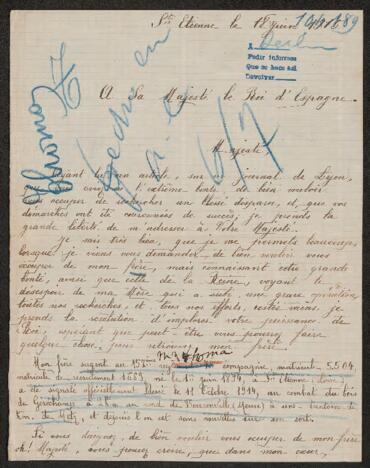 St Etienne le 18 Juin
A
Berlin
Pedir informes
Que se haga así
Devolver
A Sa Majesté le Roi d'Espagne
Majesté
Ayant lu un article, sur journal de Lyon,
que vous l'extrême bonté de bien vouloir
vous occuper de rechercher un blessé disparu, et, que vos
démarches ont été couronnées de succès, je prends la
grande liberté de m'adresser à Votre Majesté.
Je sais très bien, que je me permets beaucoup,
lorsque je viens vous demander de bien vouloir vous
occuper de mon frère, mais connaissant votre grande
bonté, ainsi que celle de la Reine, voyant le
désespoir de ma Mère qui a subi une grave opération,
toutes nos recherches et tous nos efforts, restés vains, je
prends la résolution d'implorer votre puissance de
Roi; espérant que peut-être vous pourrez faire
quelque chose, pour retrouver mon frère.
Mon frère sergent au compagnie, matricule 5504
matricule de recrutement 1669, né le 1er juin 1894, à St Etienne, Loire
a été signalé officiellement blessé le 11 Octobre 1914, au combat du bois
de
km. de Metz, et depuis l'on est sans nouvelles sur son sort.
Si vous daignez, de bien vouloir vous occuper de mon frère
oh! Majesté, vous pouvez croire, que dans mon cœur,